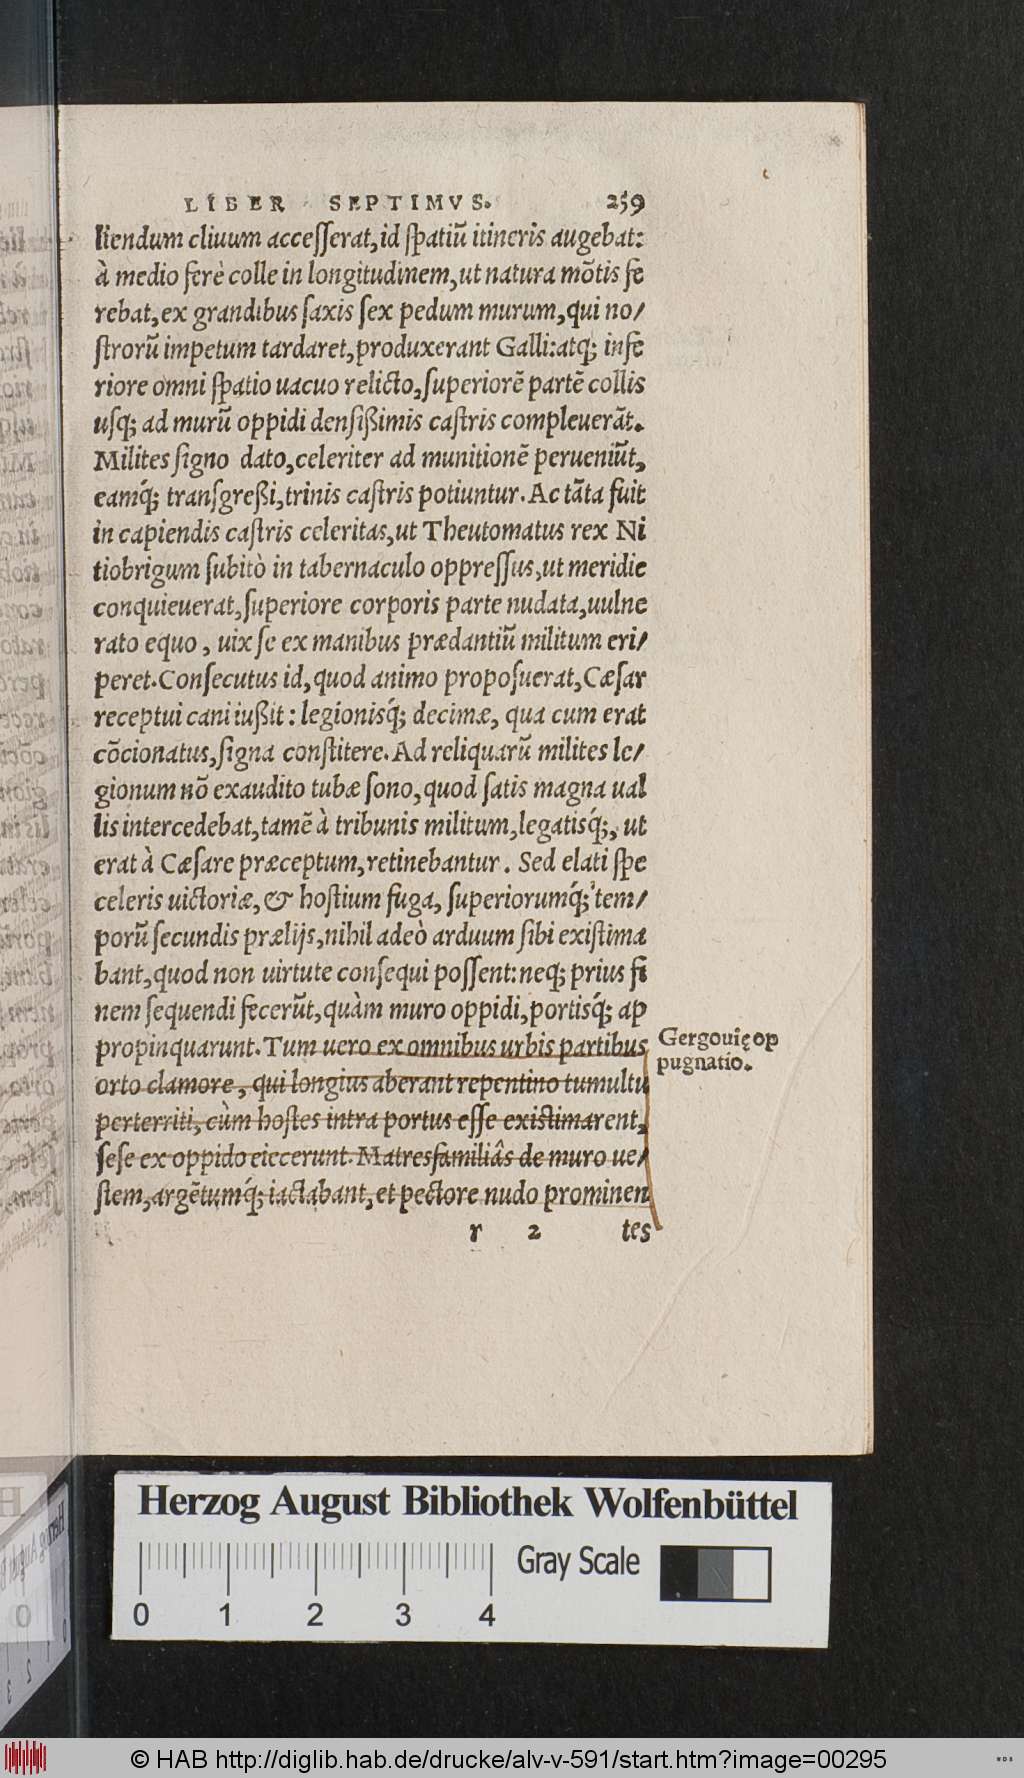 LIBER SEPTIMVS. 259
liendum cliuum accesserat, id spatiũ itineris augebat:
à medio ferè colle in longitudinem, ut natura mõtis fe
rebat, ex grandibus saxis sex pedum murum, qui no/
strorũ impetum tardaret, produxerant Galli: atq; infe
riore omni spatio uacuo relicto, superiorẽ partẽ collis
usq; ad murũ oppidi densißimis castris compleuerãt.
Milites signo dato, celeriter ad munitionẽ perueniũt,
eamq́; transgreßi, trinis castris potiuntur. Ac tãta fuit
in capiendis castris celeritas, ut Theutomatus rex Ni
tiobrigum subitò in tabernaculo oppressus, ut meridie
conquieuerat, superiore corporis parte nudata, uulne
rato equo, uix se ex manibus prædantiũ militum eri/
peret. Consecutus id, quod animo proposuerat, Cæsar
receptui cani iußit: legionisq́; decimæ, qua cum erat
cõcionatus, signa constitere. Ad reliquarũ milites le/
gionum nõ exaudito tubæ sono, quod satis magna ual
lis intercedebat, tamẽ à tribunis militum, legatisq́;, ut
erat à Cæsare præceptum, retinebantur. Sed elati spe
celeris uictoriæ, & hostium fuga, superiorumq́; tem/
porũ secundis prælijs, nihil adeò arduum sibi existima
bant, quod non uirtute consequi possent: neq; prius fi
nem sequendi fecerũt, quàm muro oppidi, portisq́; ap
propinquarunt. Tum uero ex omnibus urbis partibus
orto clamore, qui longius aberant repentino tumultu
perterriti, cùm hostes intra portus esse existimarent,
sese ex oppido eiecerunt. Matresfamiliâs de muro ue/
stem, argẽtumq́; iactabant, et pectore nudo prominen
r 2 tes
Gergouię op
pugnatio.
Herzog August Bibliothek Wolfenbüttel
Gray Scale
0 1 2 3 4
© HAB http://diglib.hab.de/drucke/alv-v-591/start.htm?image=00295